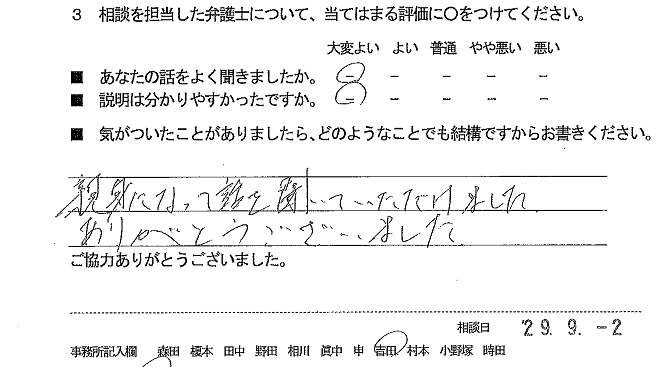 3 相談を担当した弁護士について、当てはまる評価に〇をつけてください。
大変よい よい 普通 やや悪い 悪い
■ あなたの話をよく聞きましたか。 - - - - -
■ 説明は分かりやすかったですか。 - - - - -
■ 気がついたことがありましたら、どのようなことでも結構ですからお書きください。
親身になって話を聞いていただけました
ありがとうございました
ご協力ありがとうございました。
相談日 '29. 9. -2
事務所記入欄 森田 榎本 田中 野田 相川 眞中 申 吉田 村本 小野塚 時田